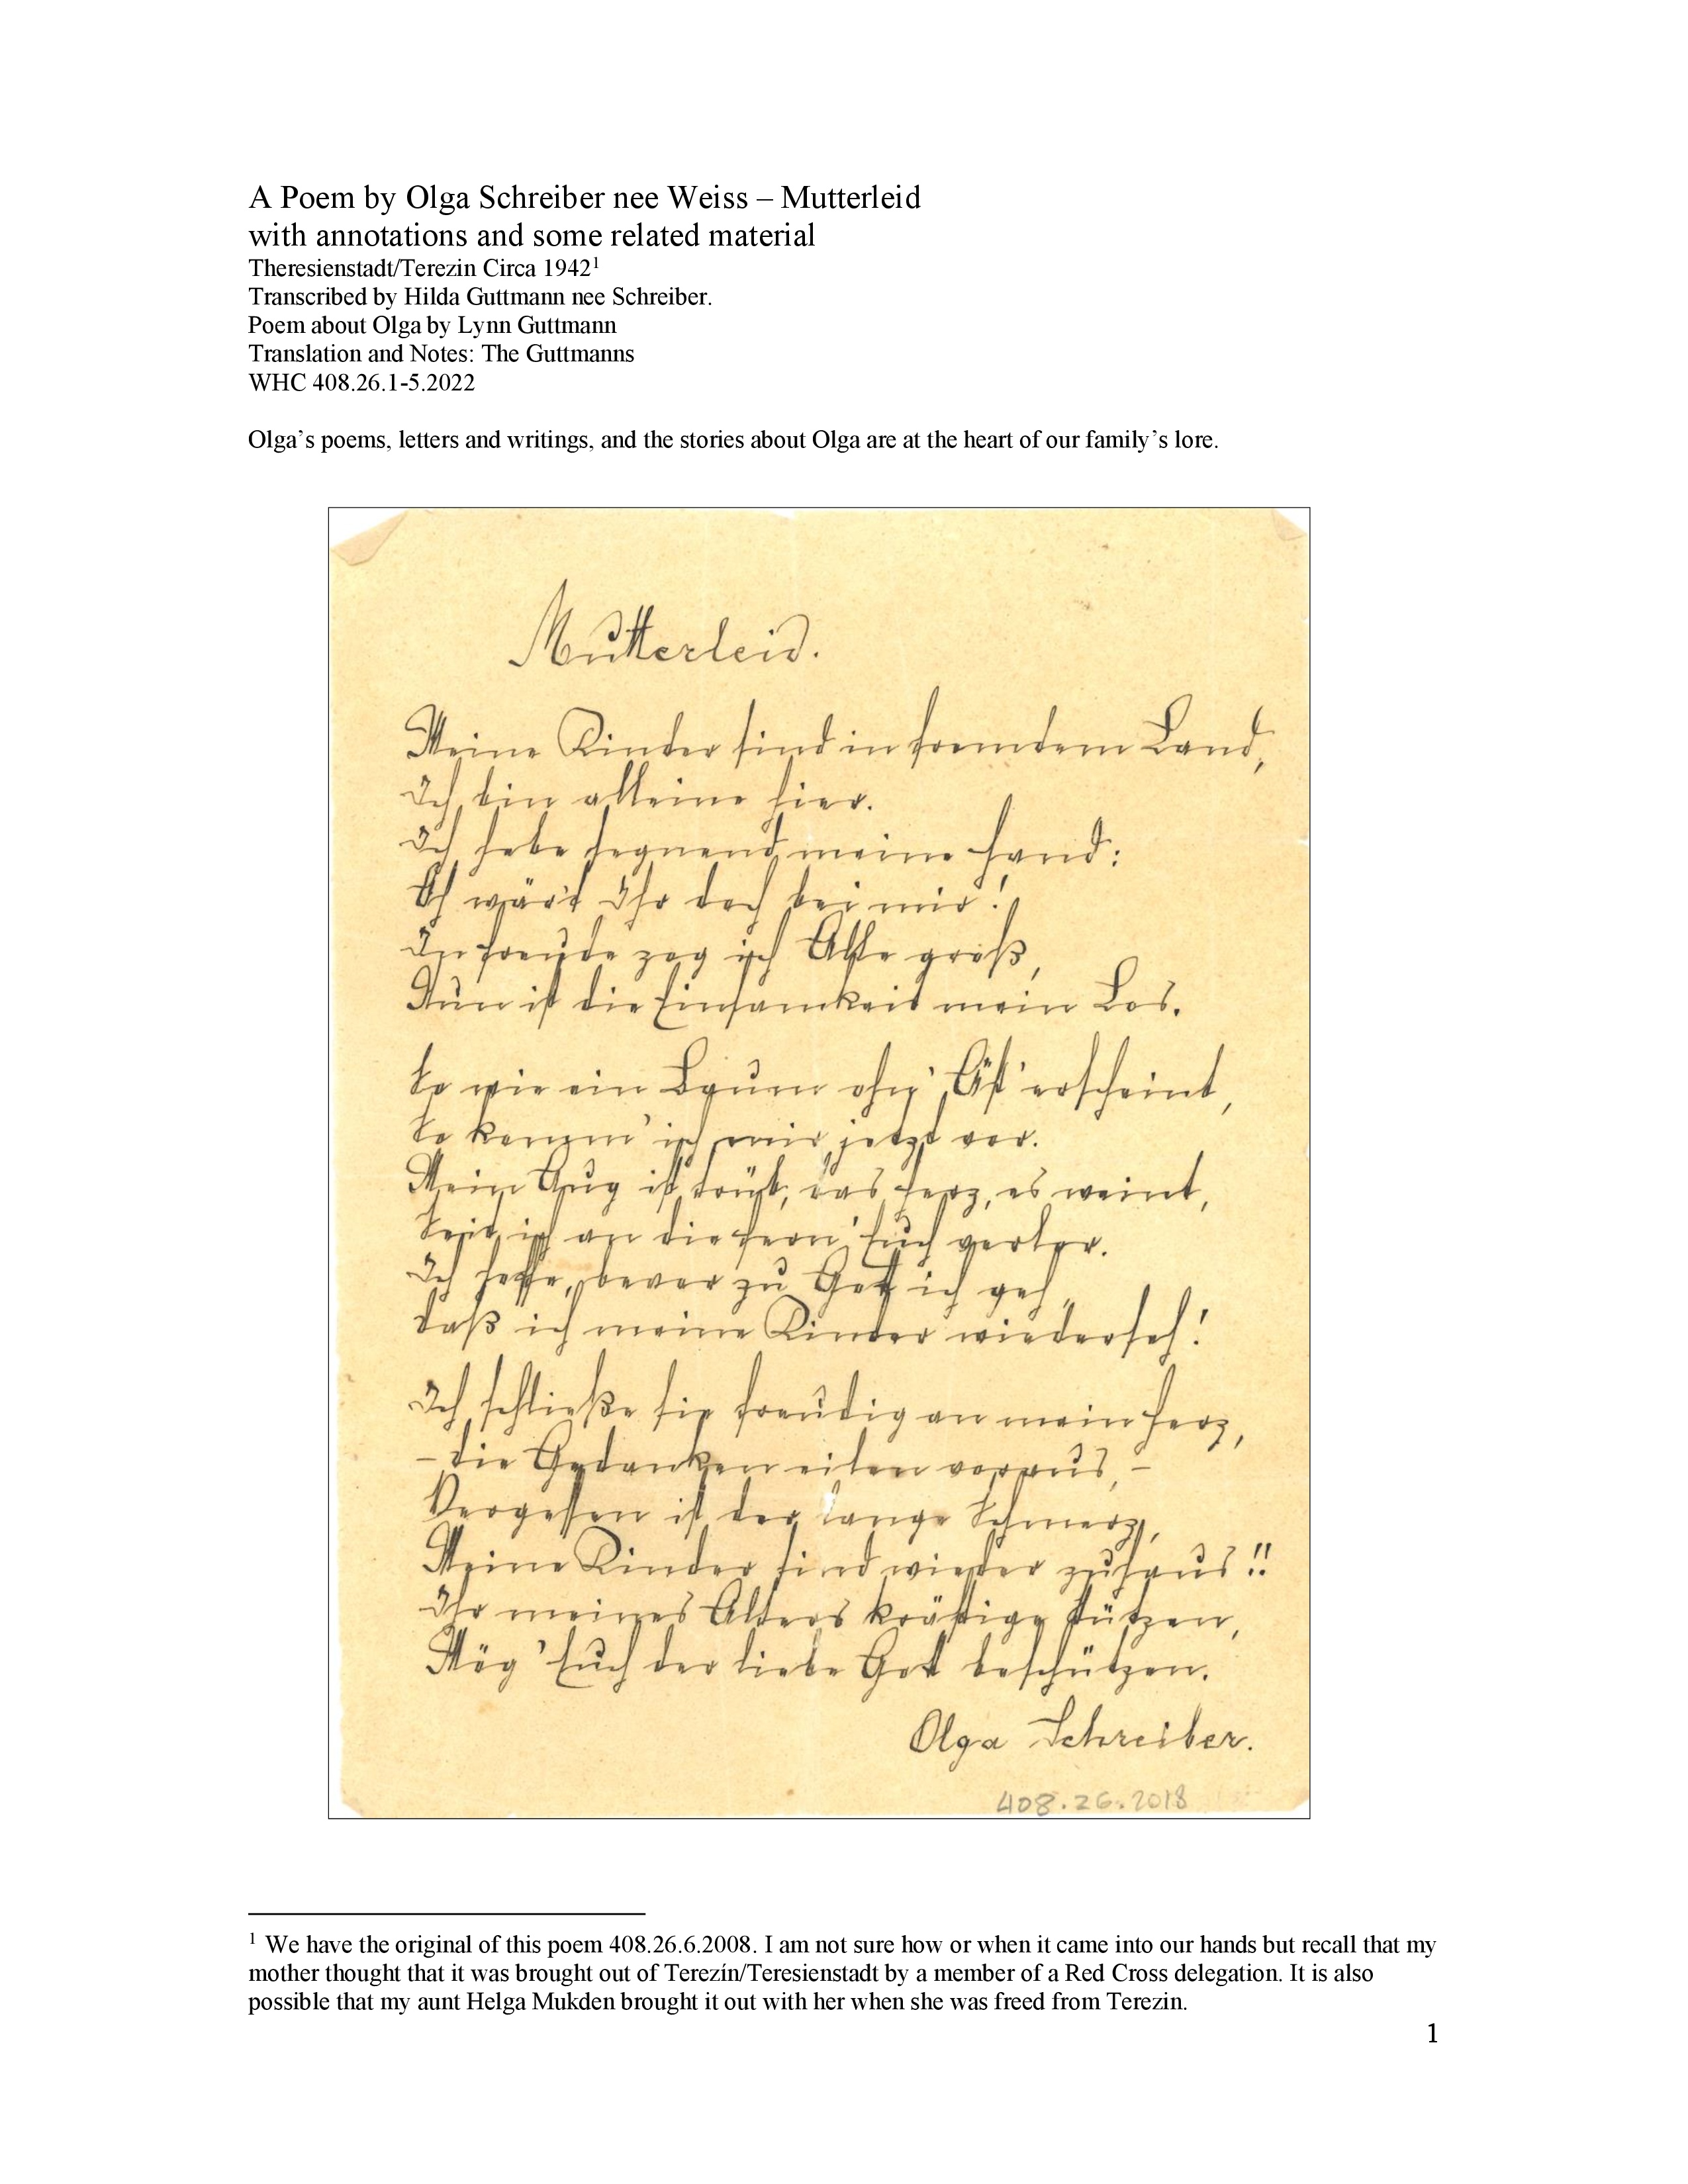 A Poem by Olga Schreiber nee Weiss – Mutterleid
with annotations and some related material
Theresienstadt/Terezin Circa 1942¹
Transcribed by Hilda Guttmann nee Schreiber.
Poem about Olga by Lynn Guttmann
Translation and Notes: The Guttmanns
WHC 408.26.1-5.2022
Olga’s poems, letters and writings, and the stories about Olga are at the heart of our family’s lore.
Mutterleid.
Meine Kinder sind in fremdem Land,
Ich bin alleine hier.
Ich hebe segnend meine Hand:
Oh wär't Ihr doch bei mir!
In Freude zog ich Alle groß,
Nun ist die Einsamkeit mein Los.
So wie ein Baum ohn' Äst' erscheint,
So komm' ich mir jetzt vor.
Mein Aug ist trüb, das Herz, es weint,
Seit ich an die Fern' Euch verlor.
Ich hoffe, bevor zu Gott ich geh,
daß ich meine Kinder wiederseh!
Ich schließe sie freudig an mein Herz,
– die Gedanken eilen voraus, –
Vergessen ist der lange Schmerz,
Meine Kinder sind wieder zuhaus!!
Ihr meines Alters kräftige Stützen,
Mög' Euch der liebe Gott beschützen.
Olga Schreiber.
408.26.2018
¹ We have the original of this poem 408.26.6.2008. I am not sure how or when it came into our hands but recall that my
mother thought that it was brought out of Terezín/Teresienstadt by a member of a Red Cross delegation. It is also
possible that my aunt Helga Mukden brought it out with her when she was freed from Terezin.
1